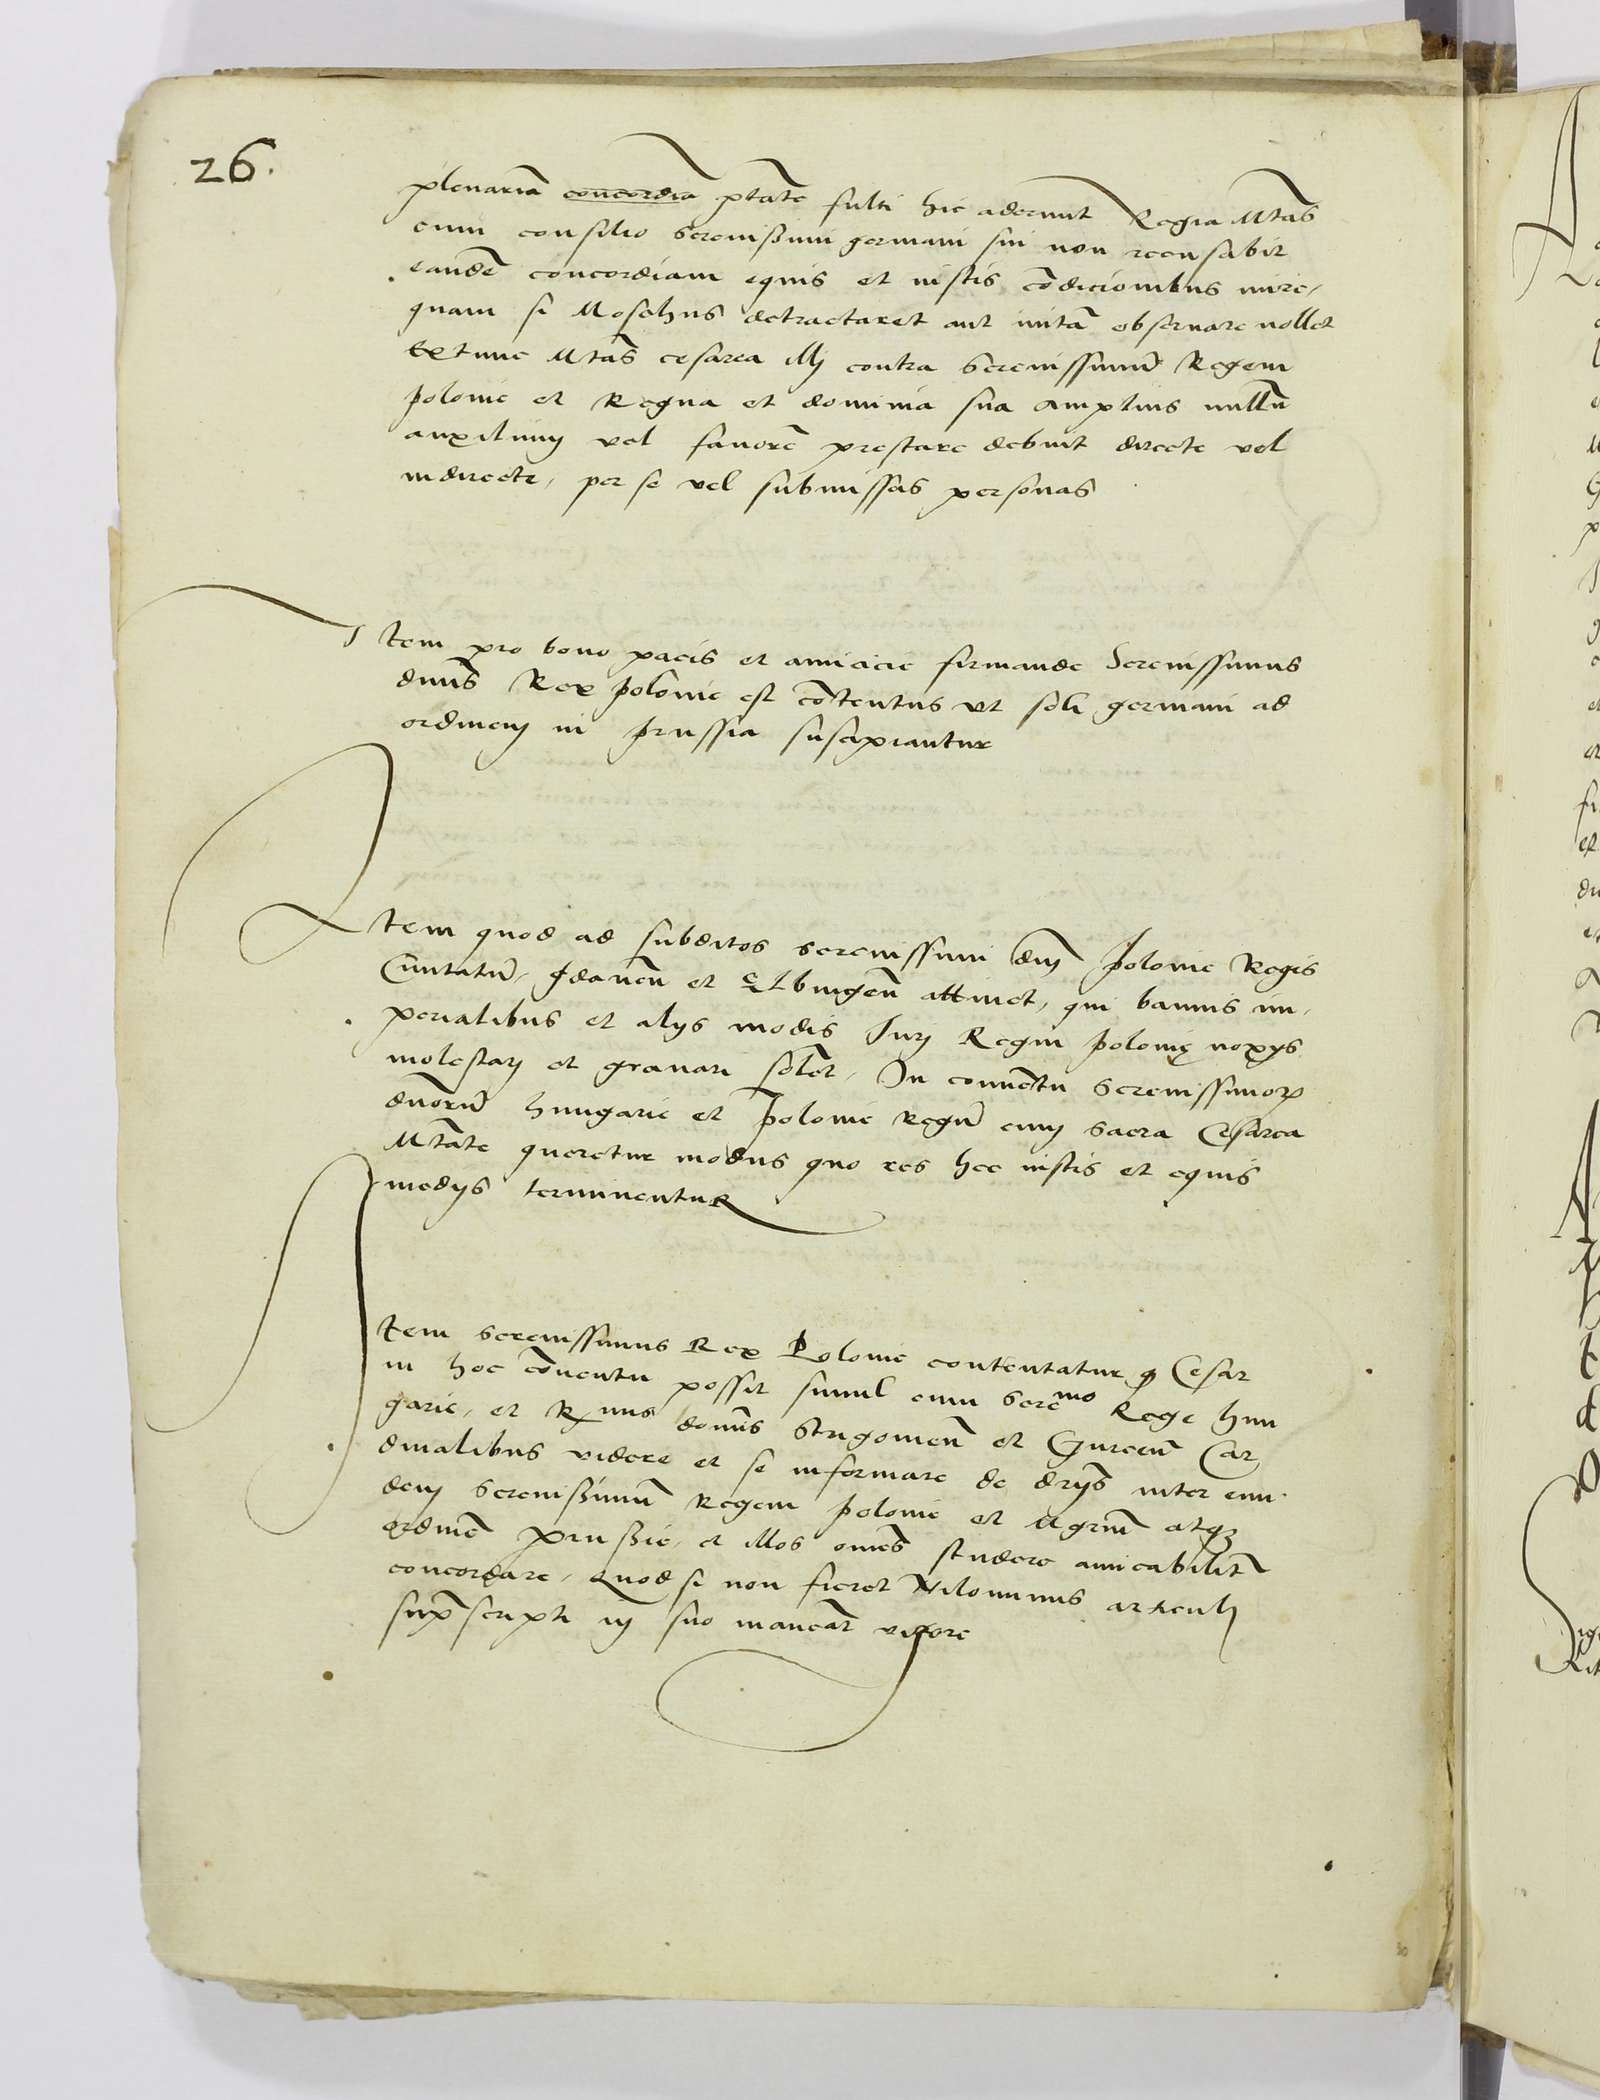 26.
plenariam concordia ptāte fulti hic aderunt Regia Mtās
cum consilio serenissimi germani sui non recusabit
eandē concordiam equis et iustis cōdicionibus inire,
quam si Moschus detractaret aut initā obseruare nollet
Extunc Mtās cesarea illi contra serenissimū Regem
polonie et Regna et dominia sua amplius nullū
auxilium vel fauorē prestare debuit directe vel
indirecte, per se vel submissas personas
Item pro bono pacis et amicicie firmande Serenissimus
dnūs Rex polonie est cōtentus vt soli germani ad
ordinem in prussia suscipiantur
Item quod ad subditos serenissimi dnī polonie Regis
Ciuitatū, Gdaneñ et Elbingeñ attinet, qui bannis im,
perialibus et alijs modis Juri Regni polonię noxijs
molestari et grauari solēt, In conuētu serenissimoꝝ
dnōrū hungarie et polonie regū cum sacra Cesarea
Mtāte queretur modus quo res hec iustis et equis
medijs terminentur
Item serenissimus Rex Polonie contentatur ꝙ Cesar
in hoc cōuentu possit simul cum serēmo Rege hun
garie, et Rmus domīs Strigonieñ et Gurceñ Car
dinalibus videre et se informare de drijs inter eun
dem serenissimū regem polonie et Mgrm̄ atqꝫ
ordinē prussie, et illos omēs studere amicabilitʳ
concordare, Quod si non fieret Nilominus articuli
supʳscripti in suo maneāt vigore